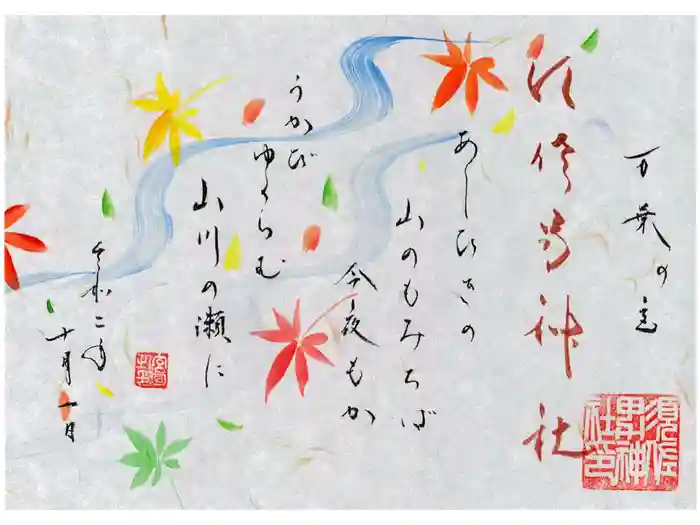 万葉の里
須佐男神社
須佐男神社印
あしひきの
山のもみちば
今夜もか
うかび
ゆくらむ
山川の瀬に
令和二年
十月一日